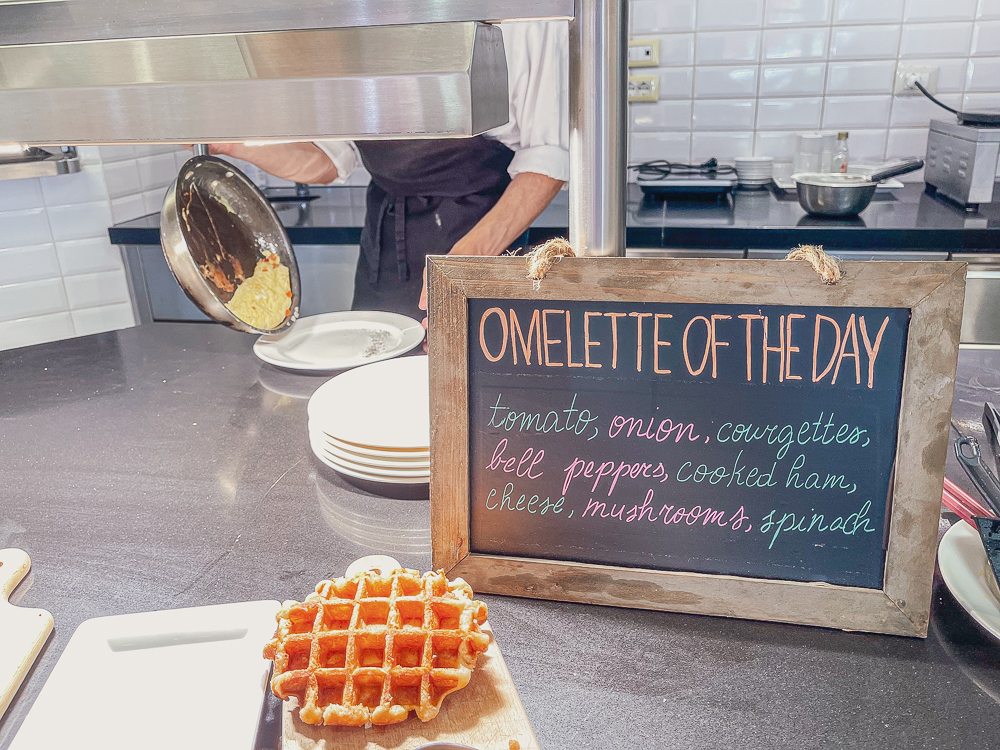 OMELETTE OF THE DAY
tomato, onion, courgettes,
bell peppers, cooked ham,
cheese, mushrooms, spinach